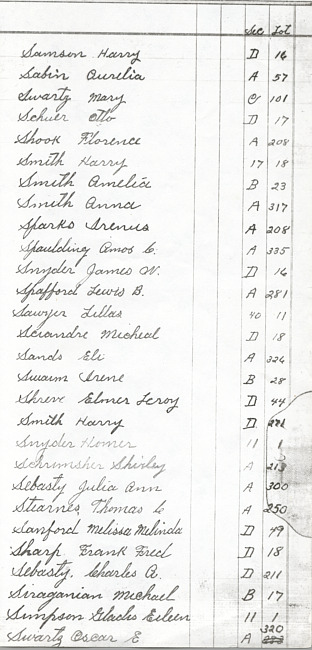 Sec Lot
Samson Harry D 16
Sabin Aurelia A 57
Swartz Mary C 101
Schuer Otto D 17
Shook Florence A 208
Smith Harry 17 18
Smith Amelia B 23
Smith Anna A 317
Sparks Irenus A 208
Spaulding Amos C. A 335
Snyder James W. D 16
Spafford Lewis B. A 281
Sawyer Lillas 40 11
Sciandre Micheal D 18
Sands Eli A 326
Swaim Irene B 28
Shreve Elmer Leroy D 44
Smith Harry D 271
Snyder Homer 11 1
Schrimsher Shirley A 213
Sebasty Julia Ann A 300
Stearnes, Thomas C A 250
Sanford Melissa Melinda D 49
Sharp Frank Fred D 18
Sebasty, Charles A. D 211
Siraganian Michael B 17
Simpson Gladis Eileen 11 1
Swartz Oscar E A 320